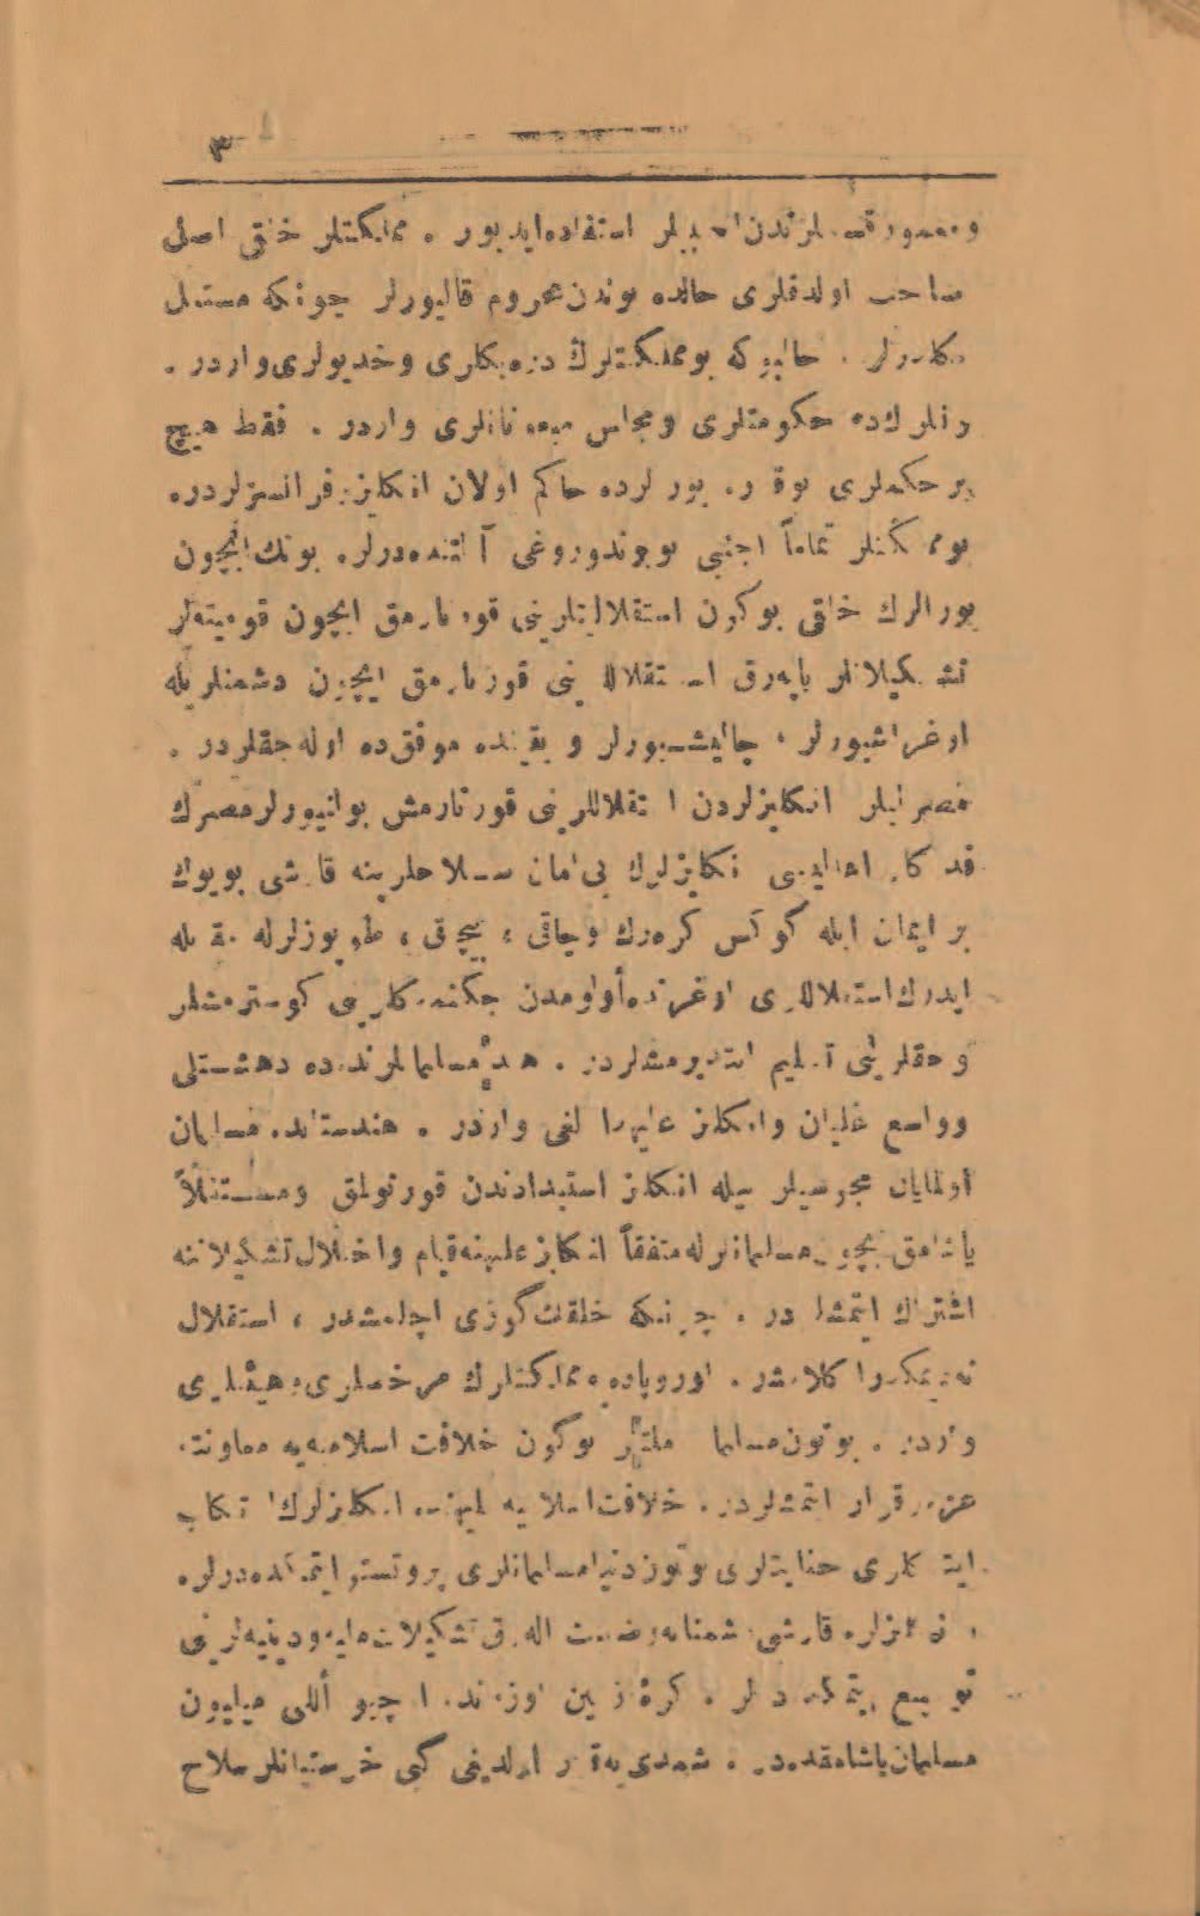 ٣
استفاده ایدیور . مملكتلر خلقی اصل
صاحب اولدقلری حالده بوندن محروم قالیورلر چونكه مستقل
دكلدرلر . حالبوكه بو مملكتلرك دره بكلری و خدیولری واردر .
حكومتلری و مجلس مبعوثانلری واردر . فقط هیچ
بر حكملری یوقدر . بورالرده حاكم اولان انكلیز ، فرانسزلردر .
بو مملكتلر تماماً اجنبی بویوندوروغی آلتنده درلر . بونك ایچون
بورالرك خلقی بوكون استقلالیتلرینی قورتارمق ایچون قومیته لر
تشكیلاتلر یاپه رق استقلاللرینی قورتارمق ایچون دشمنلریله
اوغراشیورلر ، چالیشیورلر و یقینده موفق ده اوله جقلردر .
مصرلیلر انكلیزلردن استقلاللرینی قورتارمش بولنیورلر مصرك
فداكار اهالیسی انكلیزلرك بی امان سلاحلرینه قارشی بویوك
بر ایمان ایله كوكس كره رك وچاقی ، بیچاق ، طوپوزلرله مقابله
ایدرك استقلاللری اوغرنده أولومدن چكنمدكلرینی كوسترمشلر
و حقلرینی تسلیم ایتدیرمشلردر . هند مسلمانلرنده ده دهشتلی
وواسع غلیان وانكلیز علیهدارلغی واردر . هندستانده مسلمان
أولمایان مجوسیلر بیله انكلیز استبدادندن قورتولمق ومستقلاً
یاشامق ایچون مسلمانلرله متفقاً انكلیز علیهنه قیام واختلال تشكیلاتنه
اشتراك ایتمشلردر . چونكه خلقك گوزی آچلمشدر ، استقلال
اوروپاده مملكتلرك مرخصلری وهیئتلری
واردر . بوتون مسلمان ملتلر بوكون خلافت اسلامیه یه معاونته
عزم وقرار ایتمشلردر . خلافت اسلامیه علیهنه انكلیزلرك ارتكاب
ایتدكلری جنایتلری بوتون دنیا مسلمانلری پروتستو ایتمكده درلر .
انكلیزلره قارشی دشمنانه وضعیت آله رق تشكیلات ملیه ودینیه لرینی
توسیع ایتمكده درلر . كرۀ زمین اوزرنده اوچیوز أللی میلیون
مسلمان یاشامقده در . شمدی یه قدر اولدیغی كبی خرستیانلر سلاح